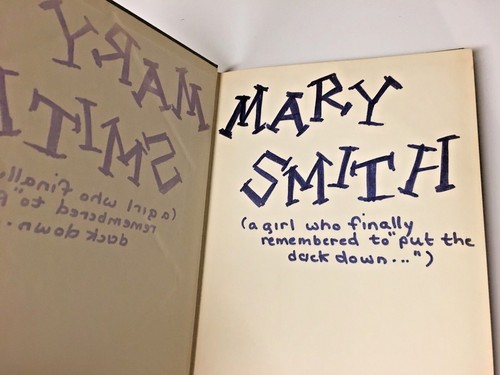 MARY
SMITH
(a girl who finally
remembered to "put the
duck down...")